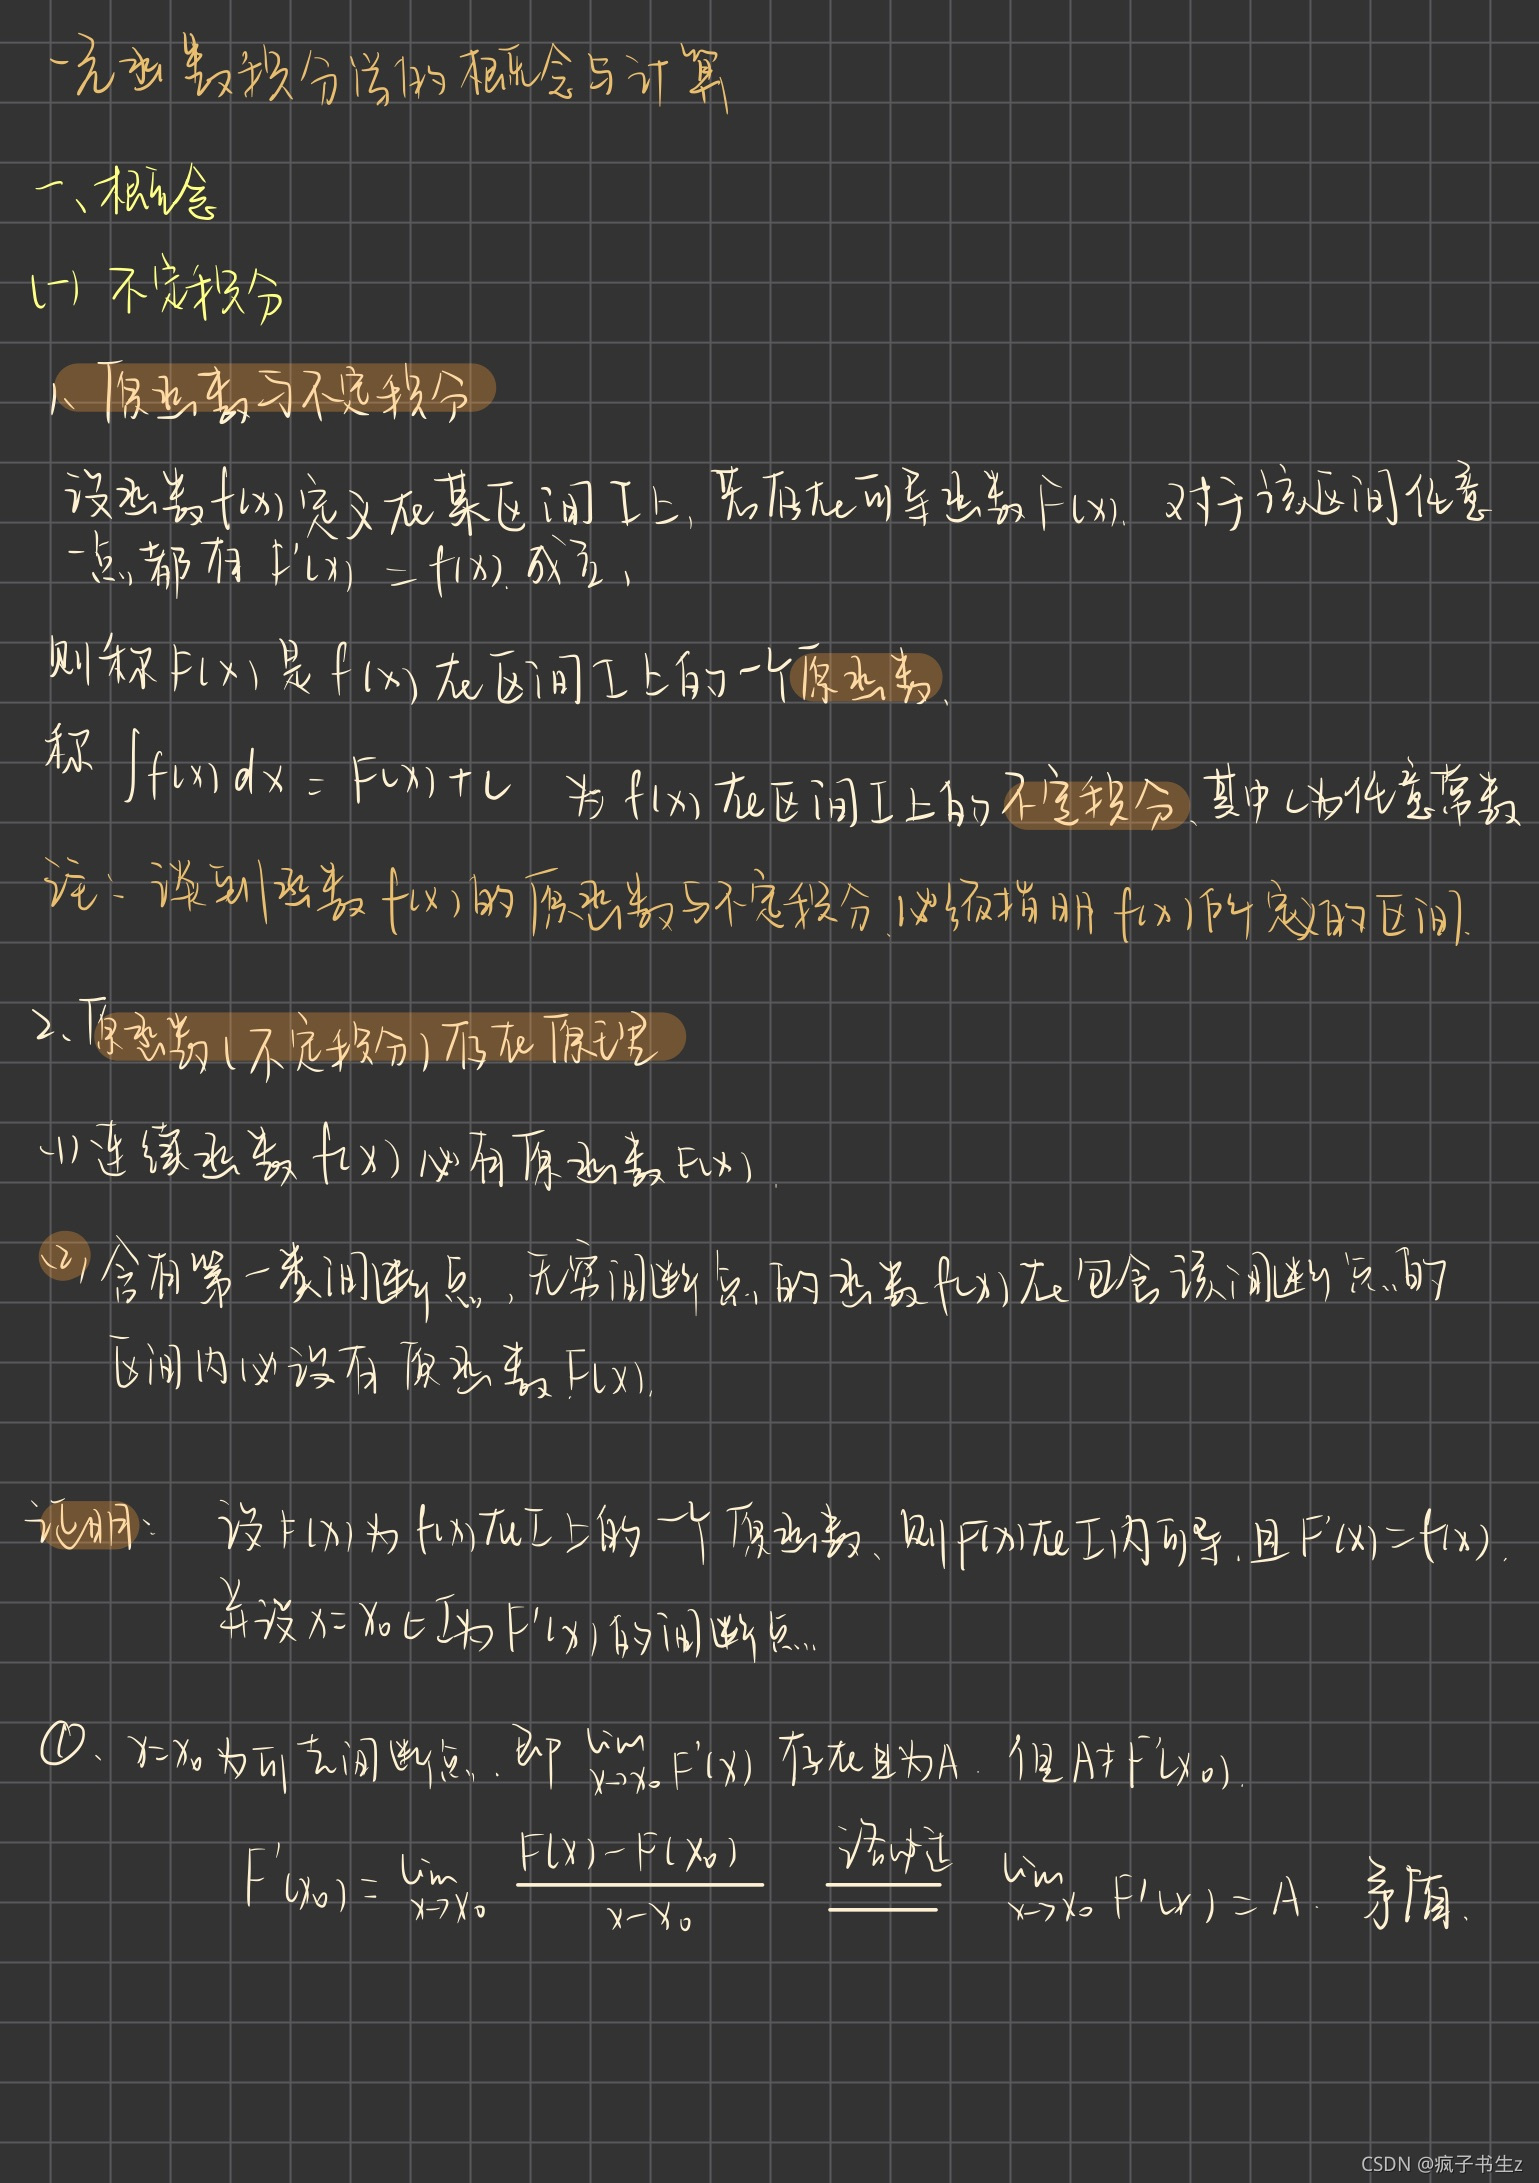 一元函数积分学的概念与计算
一、概念
(一) 不定积分
1、原函数与不定积分
设函数f(x)定义在某区间I上,若存在可导函数F(x).对于该区间任意
一点都有 F'(x) = f(x).成立,
则称F(x)是f(x)在区间I上的一个原函数.
称 ∫f(x)dx = F(x)+C 为f(x)在区间I上的不定积分、其中C为任意常数
注:谈到函数f(x)的原函数与不定积分,必须指明f(x)所定义的区间.
2、原函数(不定积分)存在原理
(1)连续函数f(x)必有原函数F(x).
(2)含有第一类间断点,无穷间断点的函数f(x)在包含该间断点的
区间内必没有原函数F(x).
证明: 设F(x)为f(x)在I上的一个原函数、则F(x)在I内可导.且F'(x)=f(x).
并设x=x₀∈I为F'(x)的间断点.
①、x=x₀为可去间断点.即 lim x→x₀ F'(x) 存在且为A. 但A≠F'(x₀).
F'(x₀) = lim x→x₀ (F(x)-F(x₀))/(x-x₀) 洛必达 = lim x→x₀ F'(x) = A. 矛盾.
CSDN @疯子书生z